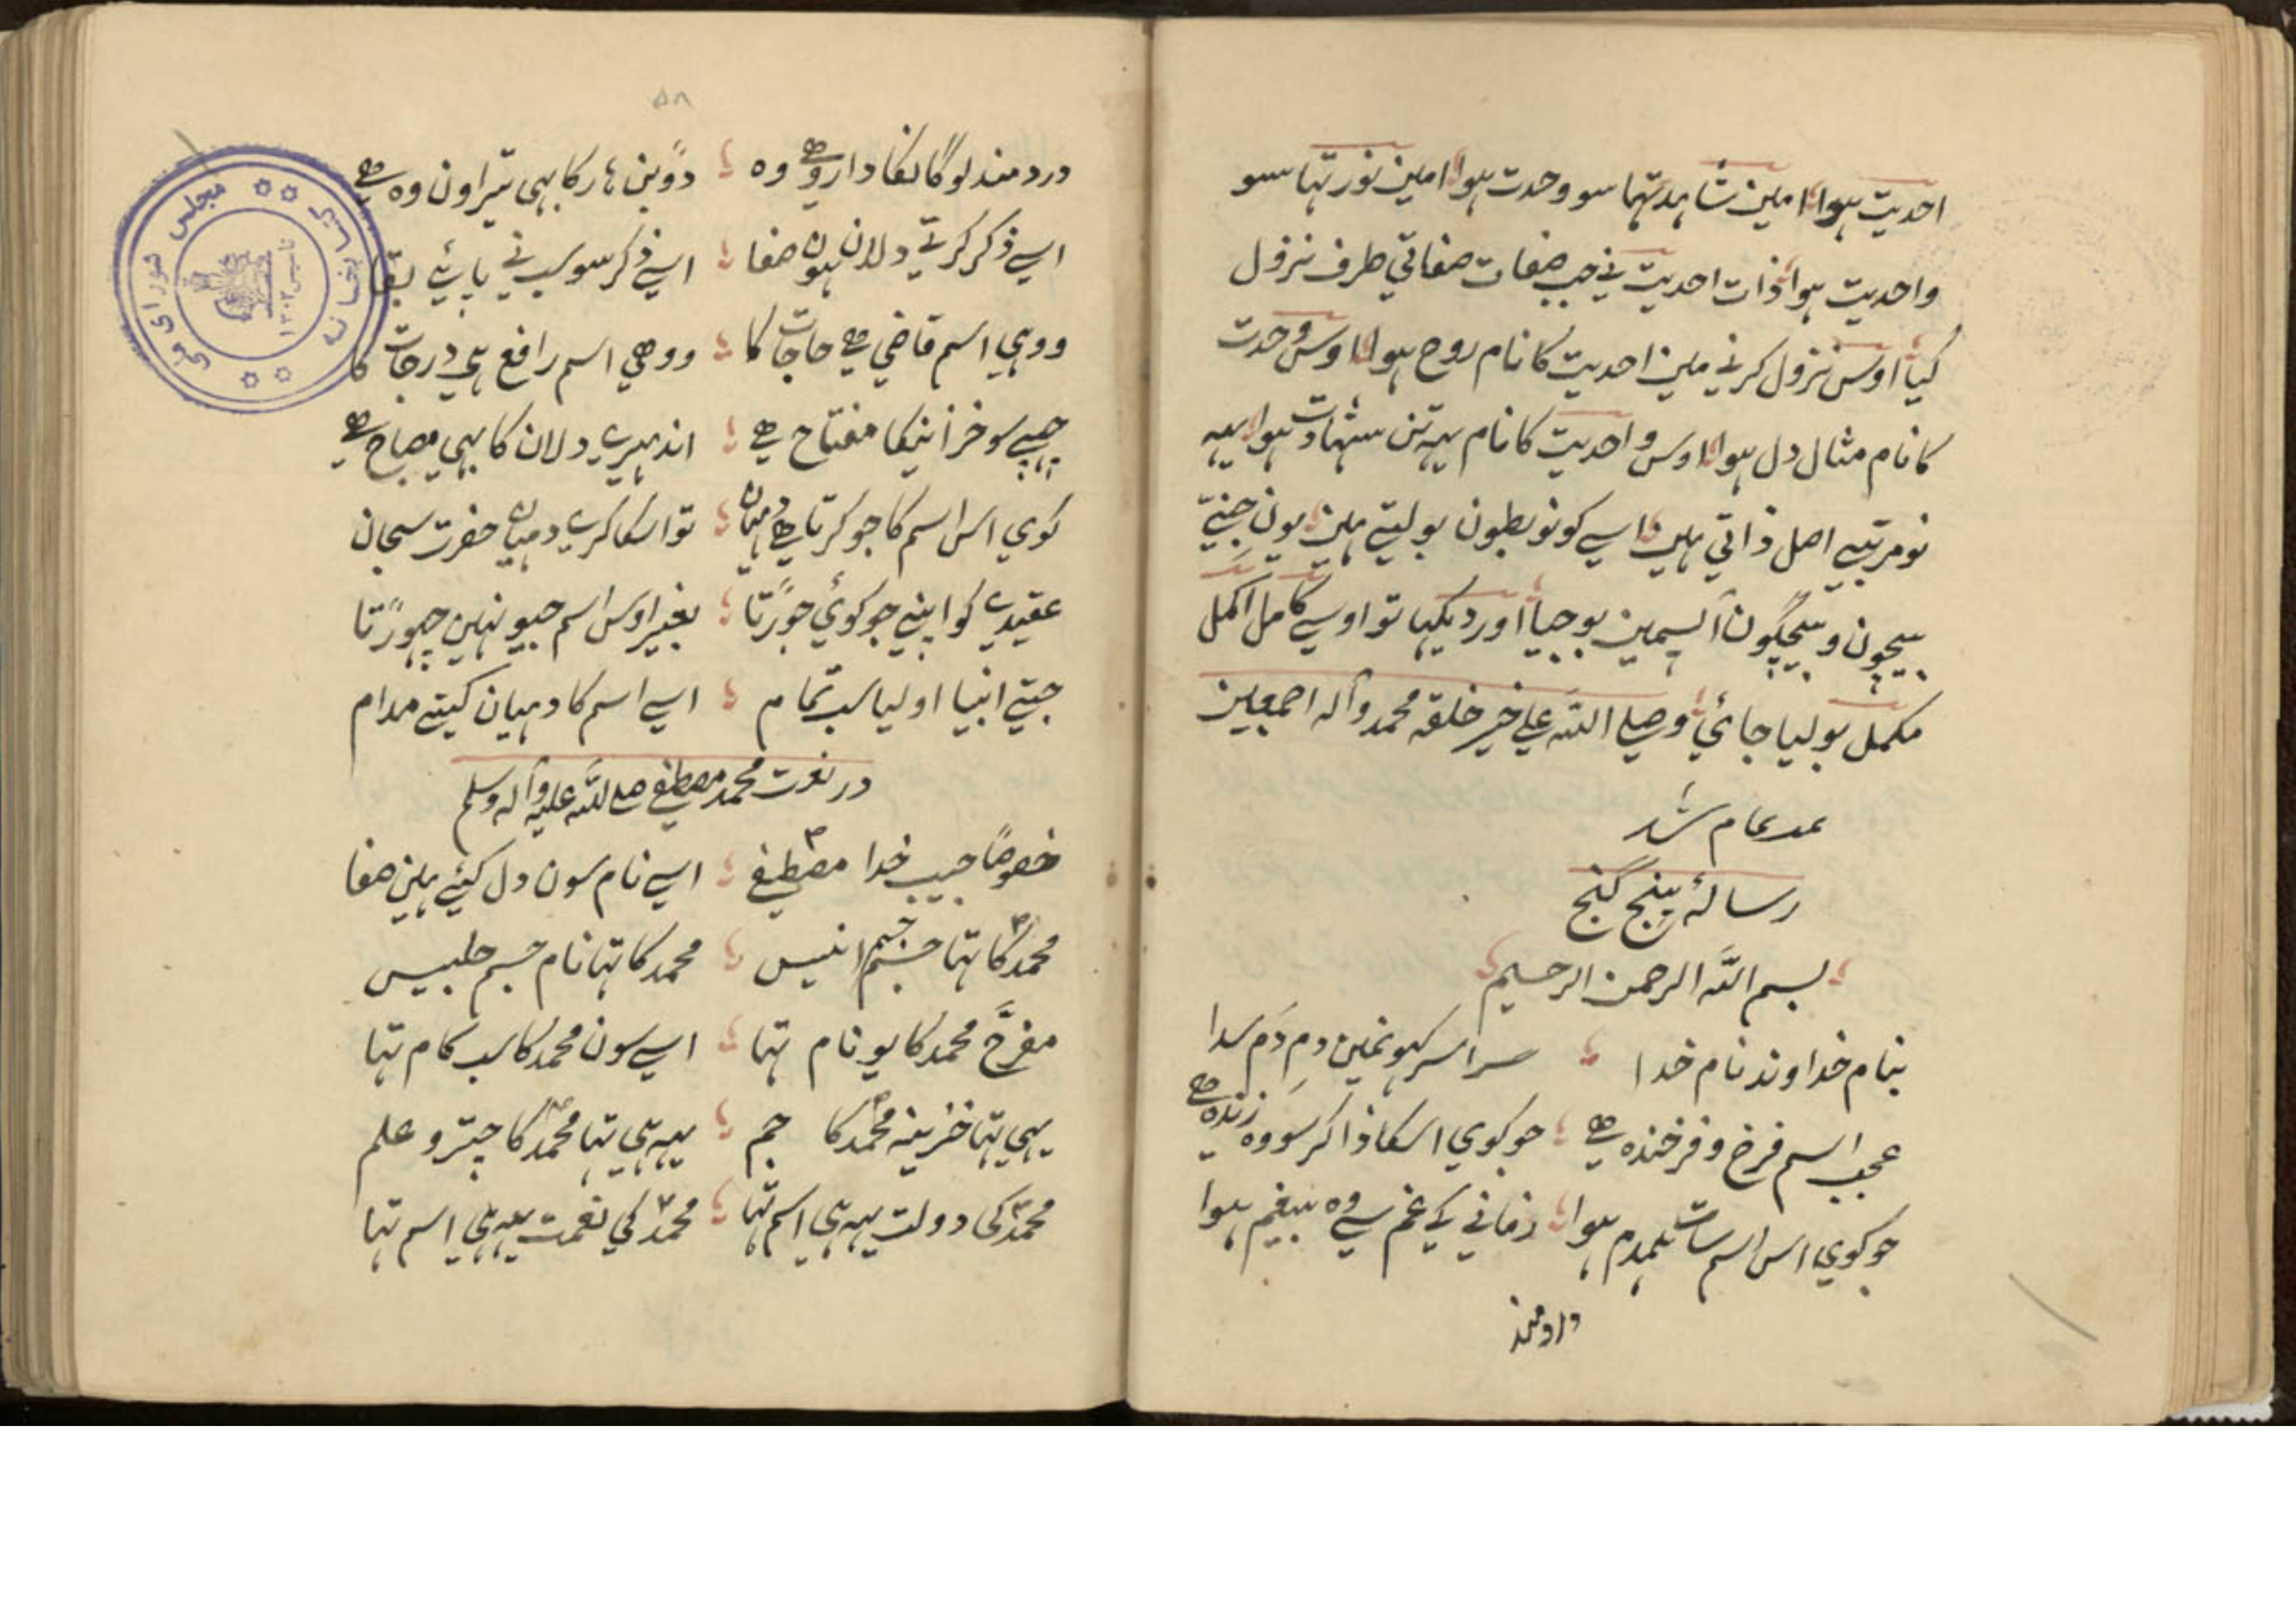 احدیت ہوا امین شاہد تہا سو وحدت ہوا امین نور تہا سو
واحدیت ہوا ذات احدیت نی جب صفات صفاتی طرف نزول
کیا اوس نزول کرنی مین احدیت کا نام روح ہوا اوس وحدت
کا نام مثال دل ہوا اوس واحدیت کا نام یہہ تن شہادت ہوا یہہ
نو مرتبی اصل ذاتی ہین اسی کو نو بطون بولیتی ہین یون جنی
بیچون و بیچگون آپسمین بوجیا اور دیکہیا تو اوسی کامل اکمل
مکمل بولیا جائی وصلی اللہ علی خیر خلقہ محمد وآلہ اجمعین
تمام شد
رسالۂ پنج گنج
بسم اللہ الرحمن الرحیم
بنام خداوند نام خدا سراسر کہو نمین دم دم سدا
عجب اسم فرخ و فرخندہ ہی جو کوی اسکا ذاکر سو وہ زندہ ہی
جو کوی اس اسم سات ہمدم ہوا زمانی کی غم سی وہ بیغم ہوا
دردمند
۵۸
دردمند لوگانکا دارو ہی وہ دوبن ہار کا بہی تیراون وہ ہی
اسی ذکر کرتی دلان ہون صفا اسی ذکر سو سب نی پائی بقا
ووہی اسم قاضی ہی حاجات کا ووہی اسم رافع ہی درجات کا
چہپی سو خزانیکا مفتاح ہی اندہیری دلان کا بہی مصباح ہی
کوی اس اسم کا جو کرتا ہی دہیان تو اسکا کری دہیان حضرت سبحان
عقیدی کو اپنی جو کوئی جوڑتا بغیر اوس اسم جیو نہین چہوڑتا
جتی انبیا اولیا سب تمام اسی اسم کا دہیان کیتی مدام
در نعت محمد مصطفی صلی اللہ علیہ وآلہ وسلم
خصوصاً حبیب خدا مصطفی اسی نام سون دل کیئی ہین صفا
محمد کا تہا جسم انیس محمد کا تہا نام جسم جلیس
مفرح محمد کا یو نام تہا اسی سون محمد کا سب کام تہا
یہی تہا خزینہ محمد کا جم یہہ ہی تہا محمد کا چتر و علم
محمد کی دولت یہہ ہی اسم تہا محمد کی نعمت یہہ ہی اسم تہا
کتابخانه مجلس شورای ملی
تاسیس ۱۳۰۲